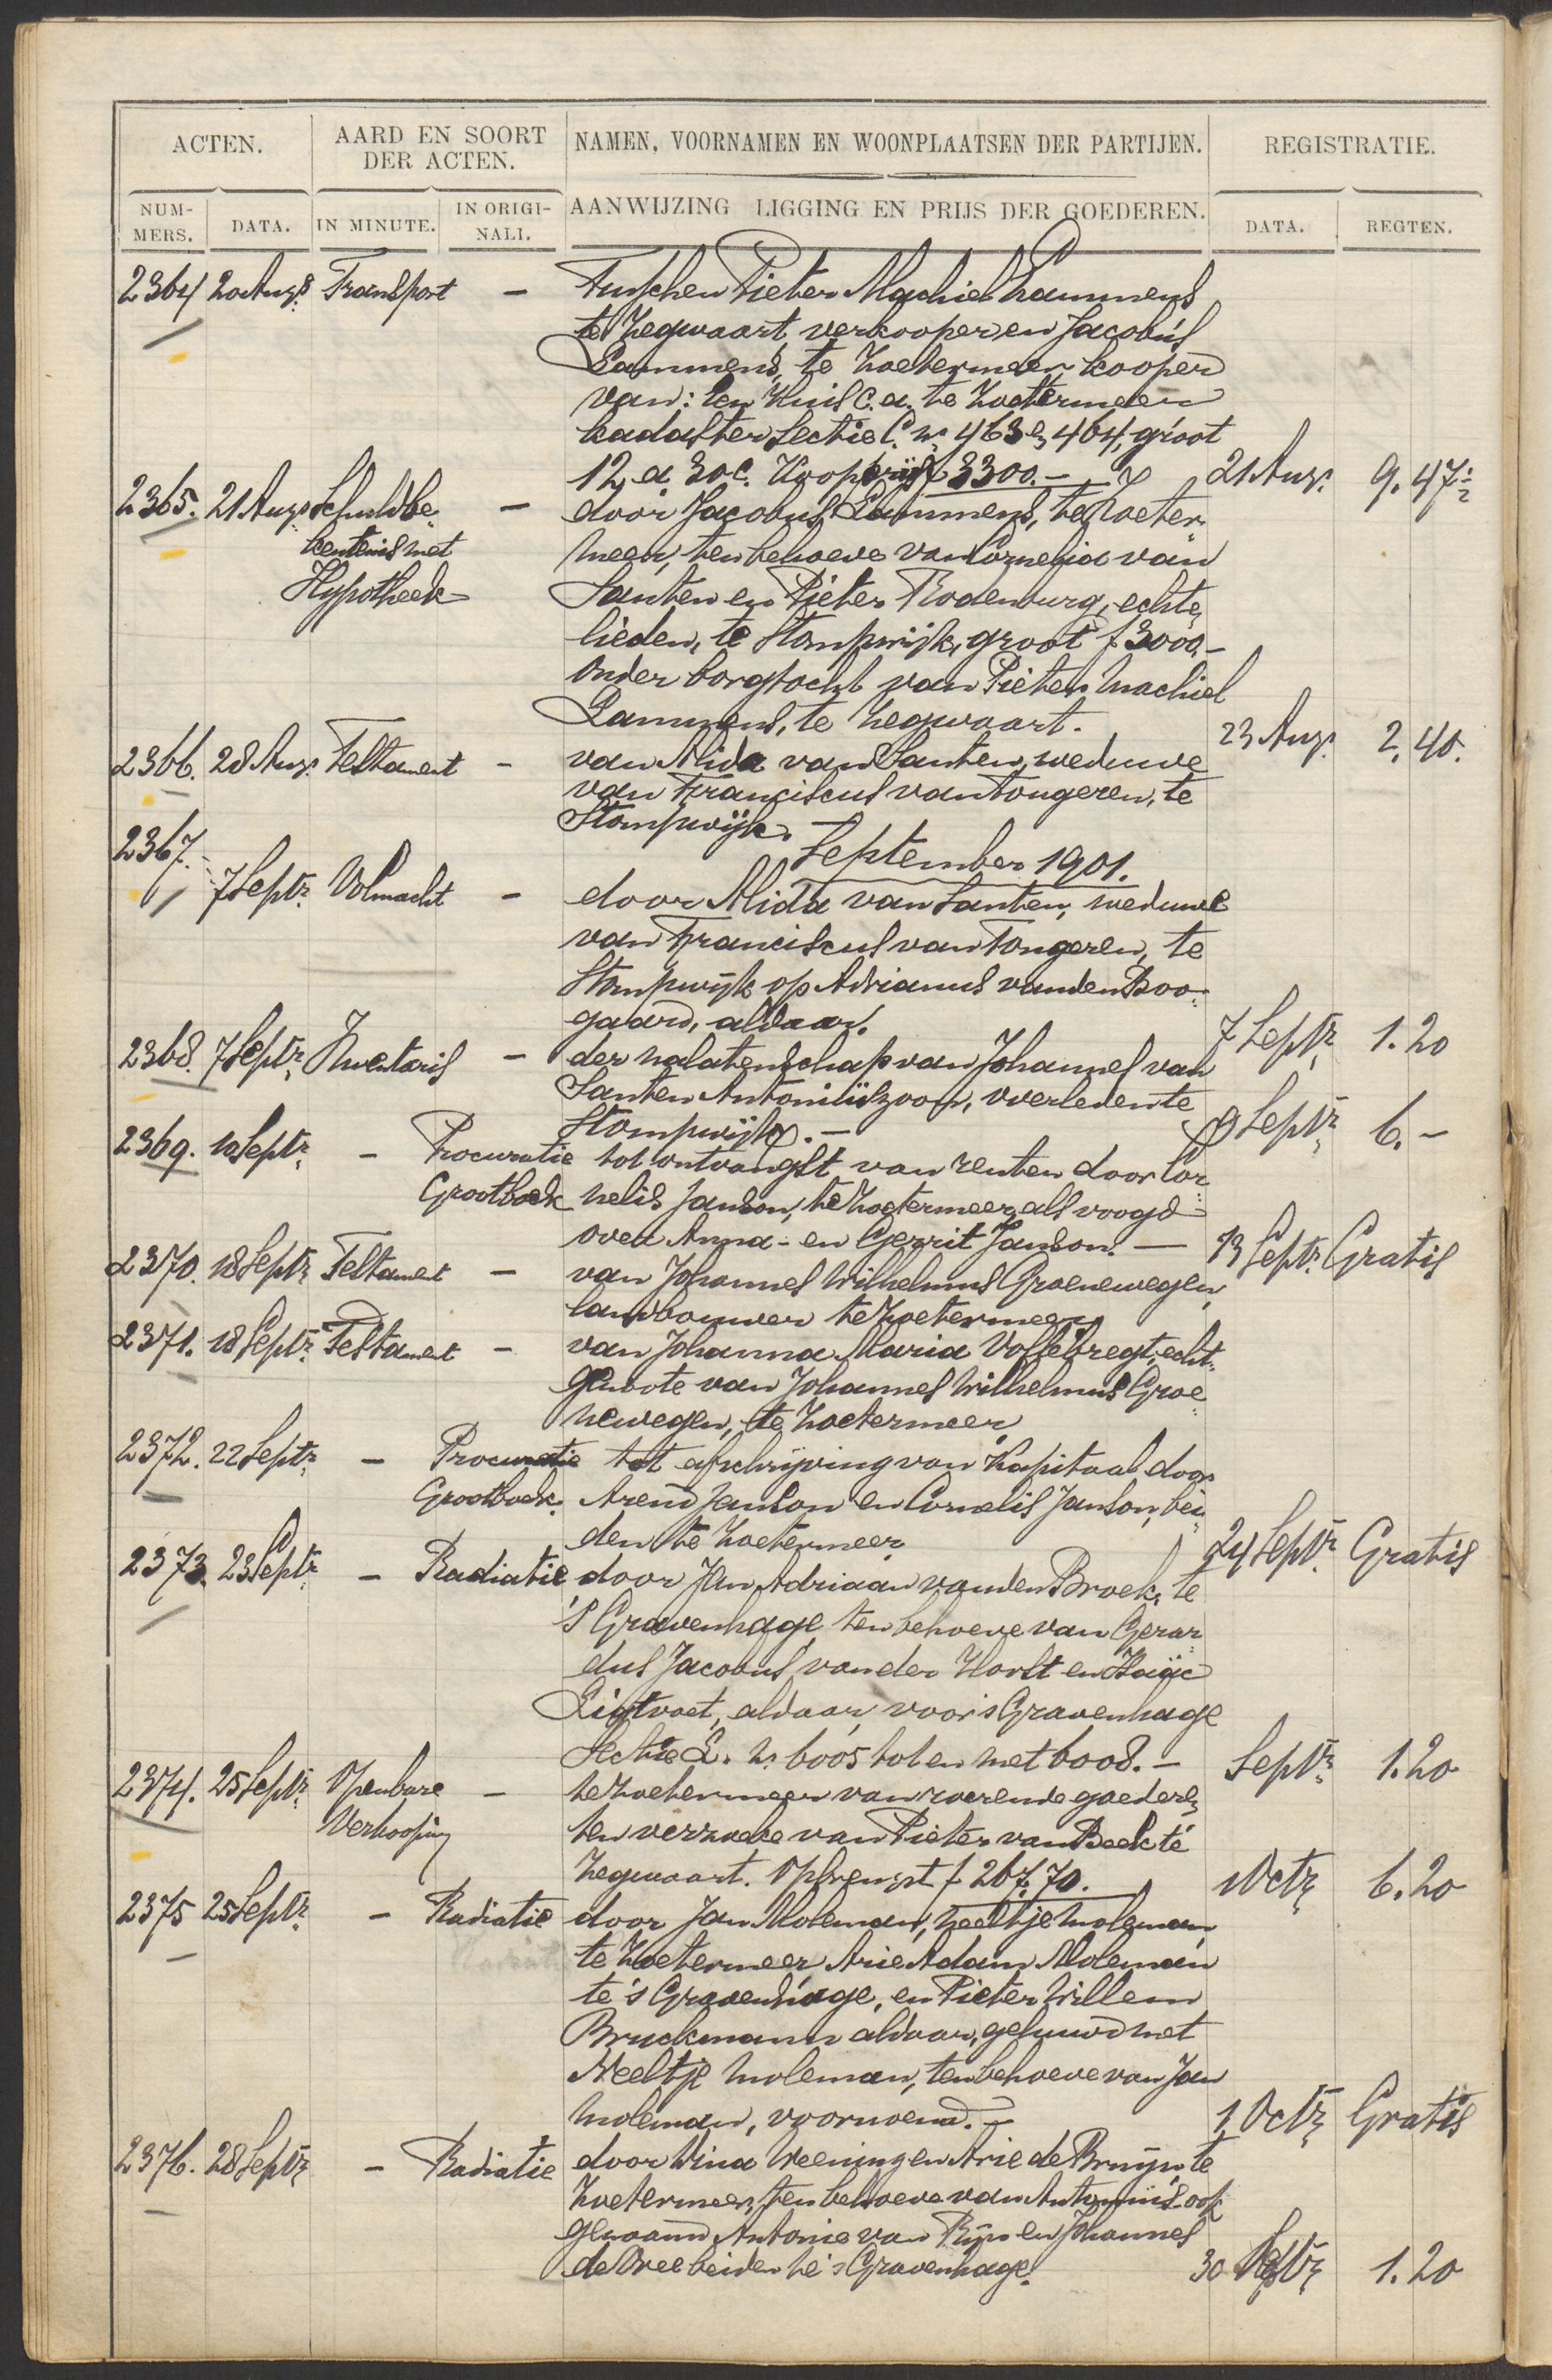 ACTEN. AARD EN SOORT DER ACTEN. NAMEN, VOORNAMEN EN WOONPLAATSEN DER PARTIJEN. REGISTRATIE.
NUMMERS. DATA. IN MINUTE. IN ORIGINALI. AANWIJZING LIGGING EN PRIJS DER GOEDEREN. DATA. REGTEN.
2364 20 Augs. Transport - Tusschen Pieter Machiel Lammens
te Zegwaart, verkooper en Jacobus
Lammens, te Zoetermeer kooper
van: Een Huis c.a. te Zoetermeer
kadaster Sectie C. nrs 463 en 464, groot
12 a 30 c. Koopprijs f 3300.- 21 Aug. 9.47½
2365. 21 Augs Schuldbe- - door Jacobus Lammens, te Zoeter-
kentenis met meer, ten behoeve van Cornelia van
Hypotheek Santen en Pieter Rodenburg, echte-
lieden, te Stompwijk, groot f 3000.-
onder borgtocht van Pieter Machiel
Lammens, te Zegwaart. 23 Aug. 2.40.
2366. 28 Aug. Testament - van Alida van Santen, weduwe
van Franciscus van Tongeren, te
Stompwijk.
September 1901.
2367. 7 Septr. Volmacht - door Alida van Santen, weduwe
van Franciscus van Tongeren, te
Stompwijk op Adrianus van den Boo-
gaard, aldaar. 7 Septr. 1.20
2368. 7 Septr. Inventaris - der nalatenschap van Johannes van
Santen Antoniuszoon, overleden te
Stompwijk. - 9 Septr. 6.-
2369. 10 Septr. - Procuratie tot ontvangst van renten door Cor-
Grootboek nelis Janson, te Zoetermeer als voogd
over Anna- en Gerrit Janson. - 13 Septr. Gratis
2370. 18 Septr. Testament - van Johannes Wilhelmus Groenewegen,
landbouwer te Zoetermeer
2371. 18 Septr. Testament - van Johanna Maria Vollebregt, echt-
genoote van Johannes Wilhelmus Groe-
newegen, te Zoetermeer,
2372. 22 Septr. - Procuratie tot afschrijving van Kapitaal door
Grootboek. Arend Janson en Cornelis Janson, bei-
den te Zoetermeer 24 Septr. Gratis
2373. 23 Septr. - Radiatie door Jan Adriaan van den Broek, te
's Gravenhage ten behoeve van Gerar-
dus Jacobus van der Horst en
Ligtvoet, aldaar, voor 's Gravenhage
Sectie L. nr. 6005 tot en met 6008. - Septr. 1.20
2374. 25 Septr. Openbare - te Zoetermeer van roerende goederen
Verkooping ten verzoeke van Pieter van Beek te
Zegwaart. Opbrengst f 267.70. 1 Octr. 6.20
2375 25 Septr. - Radiatie door Jan Moleman, Neeltje Moleman,
te Zoetermeer, Arie Adam Moleman
te 's Gravenhage, en Pieter Willem
Bruckmann aldaar, gehuwd met
Neeltje Moleman, ten behoeve van Jan
Moleman, voornoemd. - 1 Octr. Gratis
2376. 28 Septr. - Radiatie door Wina Weeningen Arie de Bruyn, te
Zoetermeer, ten behoeve van Antonius ook
genaamd Antonie van Rijn en Johannes
de Bree beiden te 's Gravenhage. 30 Septr. 1.20